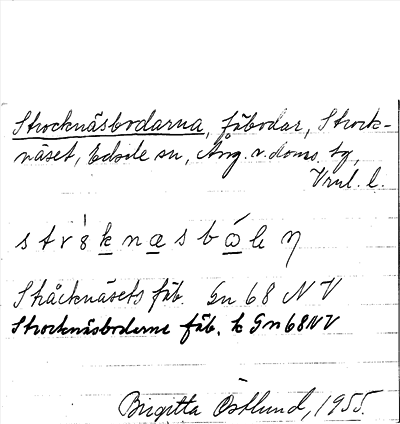 Strocknäsbodarna, fäbodar, Strock-
näset, Edsele sn, Ång. v. doms. tg,
Vnl. l.
Stråcknäsets fäb. Gn 68 NV
Strocknäsboderne fäb. k Gn 68 NV
Birgitta Östlund, 1955.